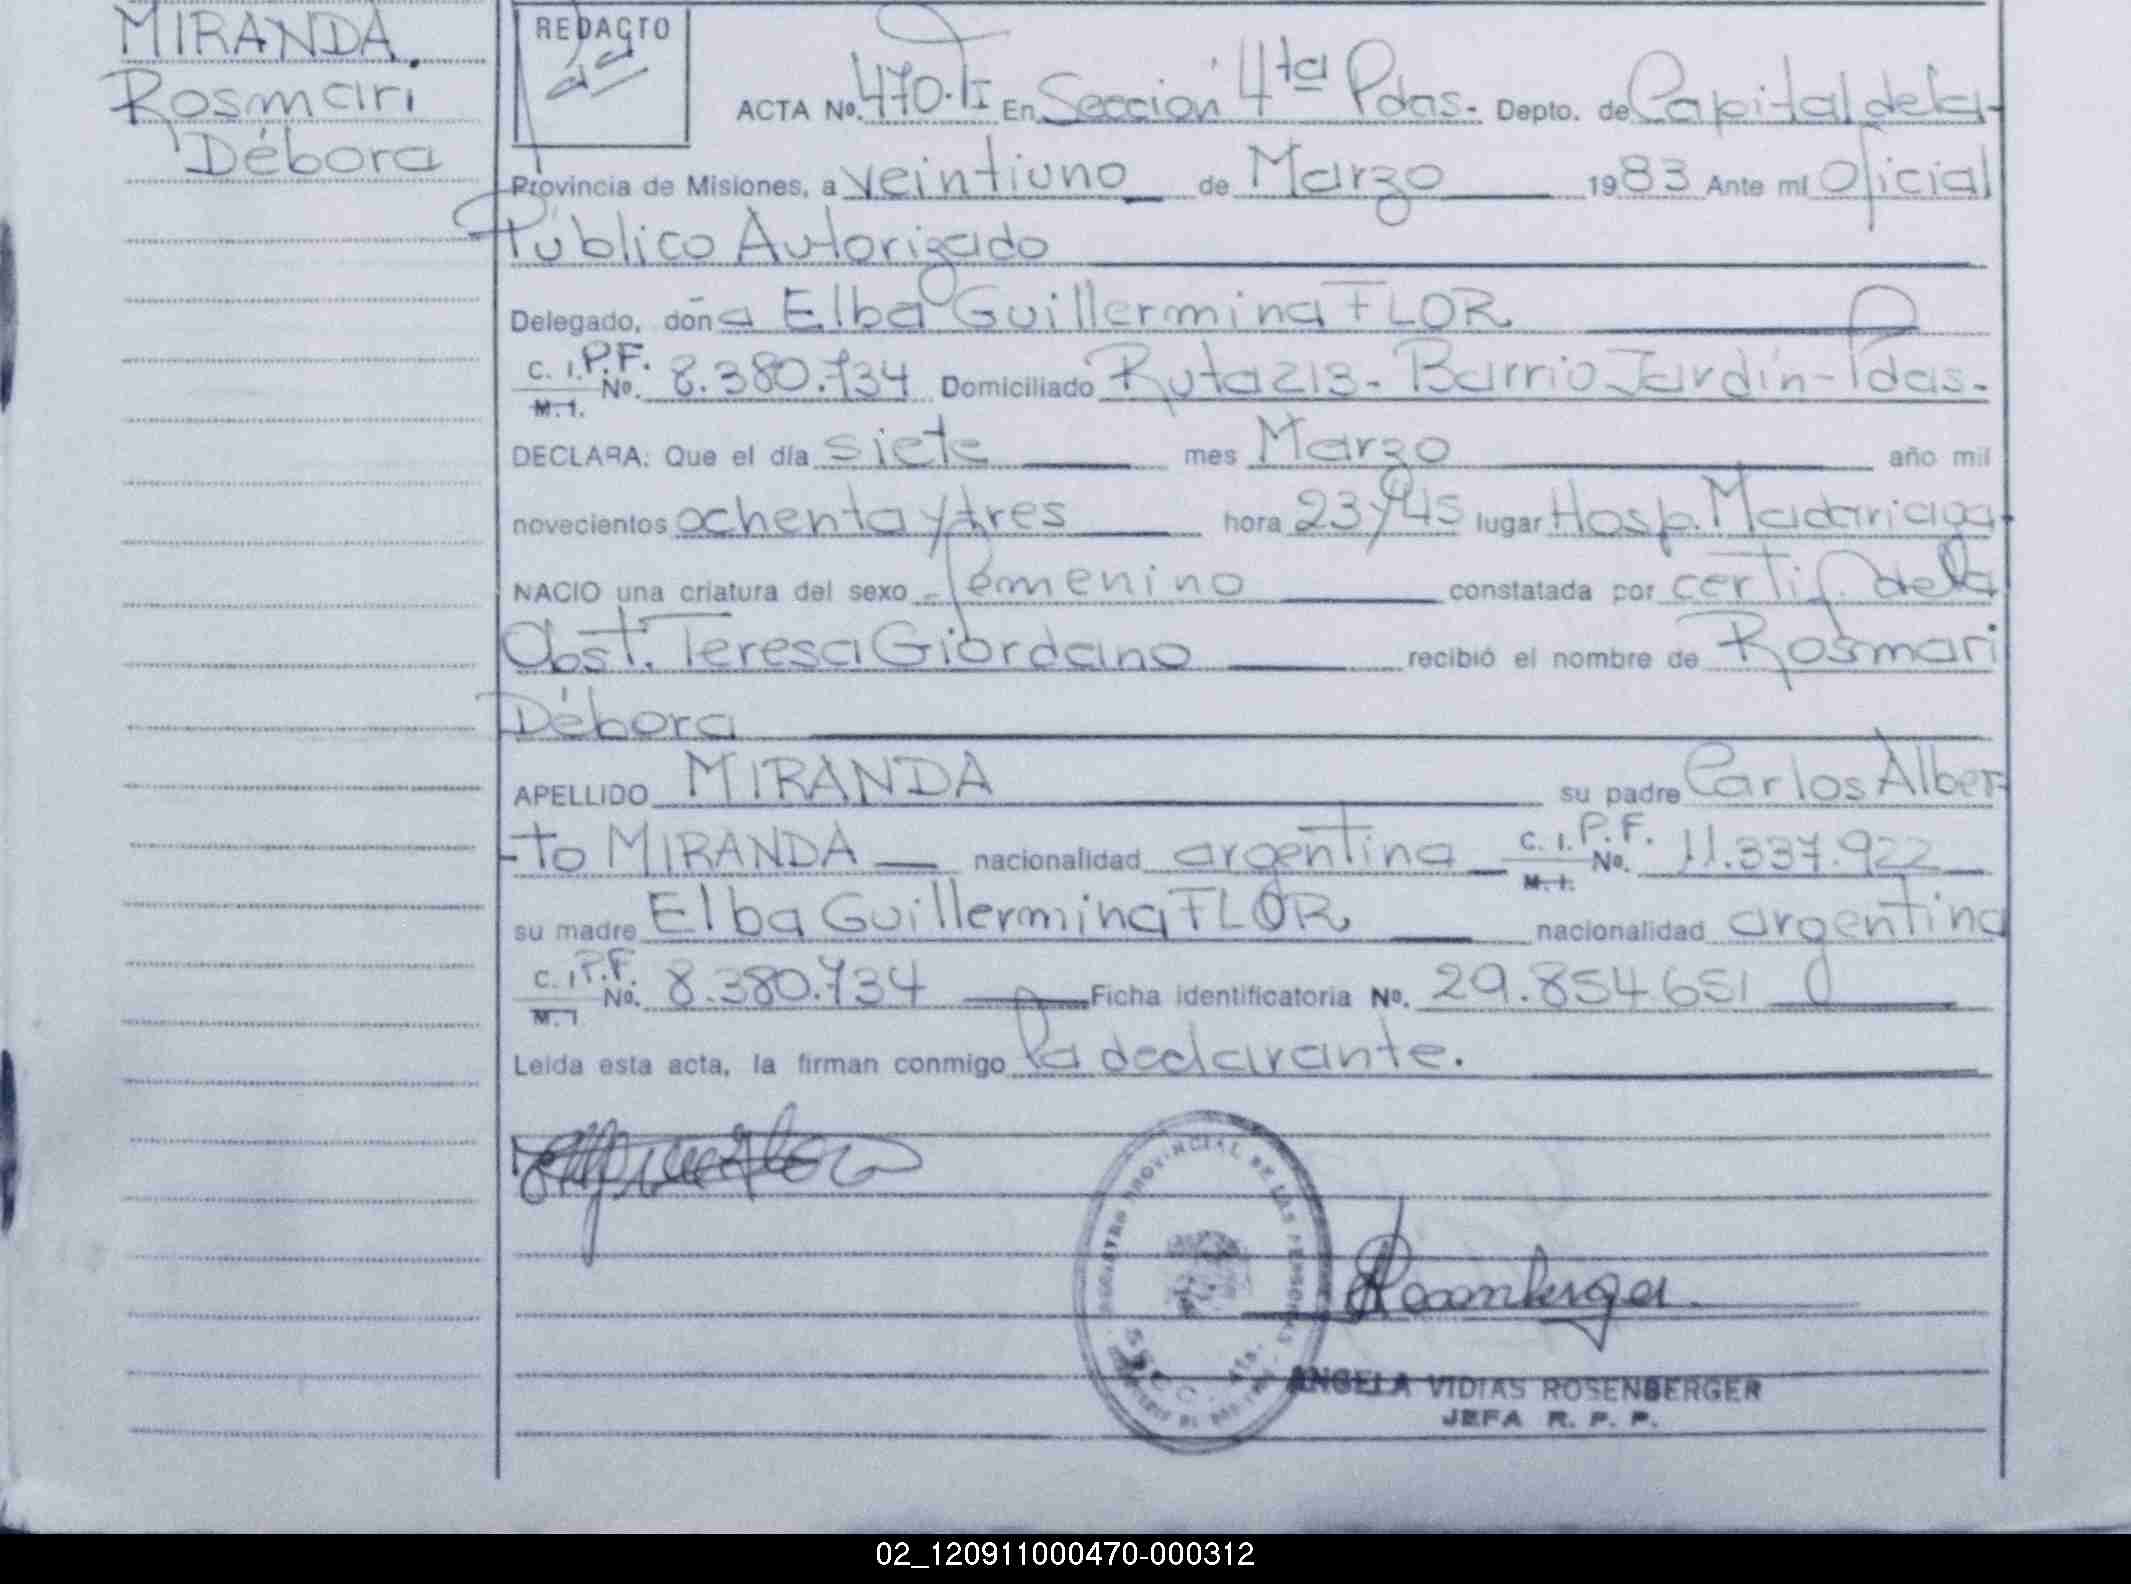 MIRANDA.
Rosmari
Débora
REDACTO
ACTA Nº. 470.TI En Sección 4ta Pdas.- Depto. de Capital de la-
Provincia de Misiones, a veintiuno de Marzo 1983 Ante mí Oficial
Público Autorizado
Delegado, doña Elba Guillermina FLOR
C. I. P.F. Nº. 8.380.734 Domiciliado Ruta 213- Barrio Jardín- Pdas.-
M. I.
DECLARA: Que el día siete mes Marzo año mil
novecientos ochenta y tres hora 23y45 lugar Hosp. Madariaga-
NACIO una criatura del sexo femenino constatada por certif. de la
Obst. Teresa Giordano recibió el nombre de Rosmari
Débora
APELLIDO MIRANDA su padre Carlos Alber-
-to MIRANDA nacionalidad argentina C. I. P.F. Nº. 11.337.922
M. I.
su madre Elba Guillermina FLOR nacionalidad argentina
C. I. P.F. Nº. 8.380.734 Ficha identificatoria Nº. 29.854.651
M. I
Leida esta acta, la firman conmigo la declarante.
REGISTRO PROVINCIAL DE LAS PERSONAS
Rosenberger
ANGELA VIDIAS ROSENBERGER
JEFA R. P. P.
02_120911000470-000312